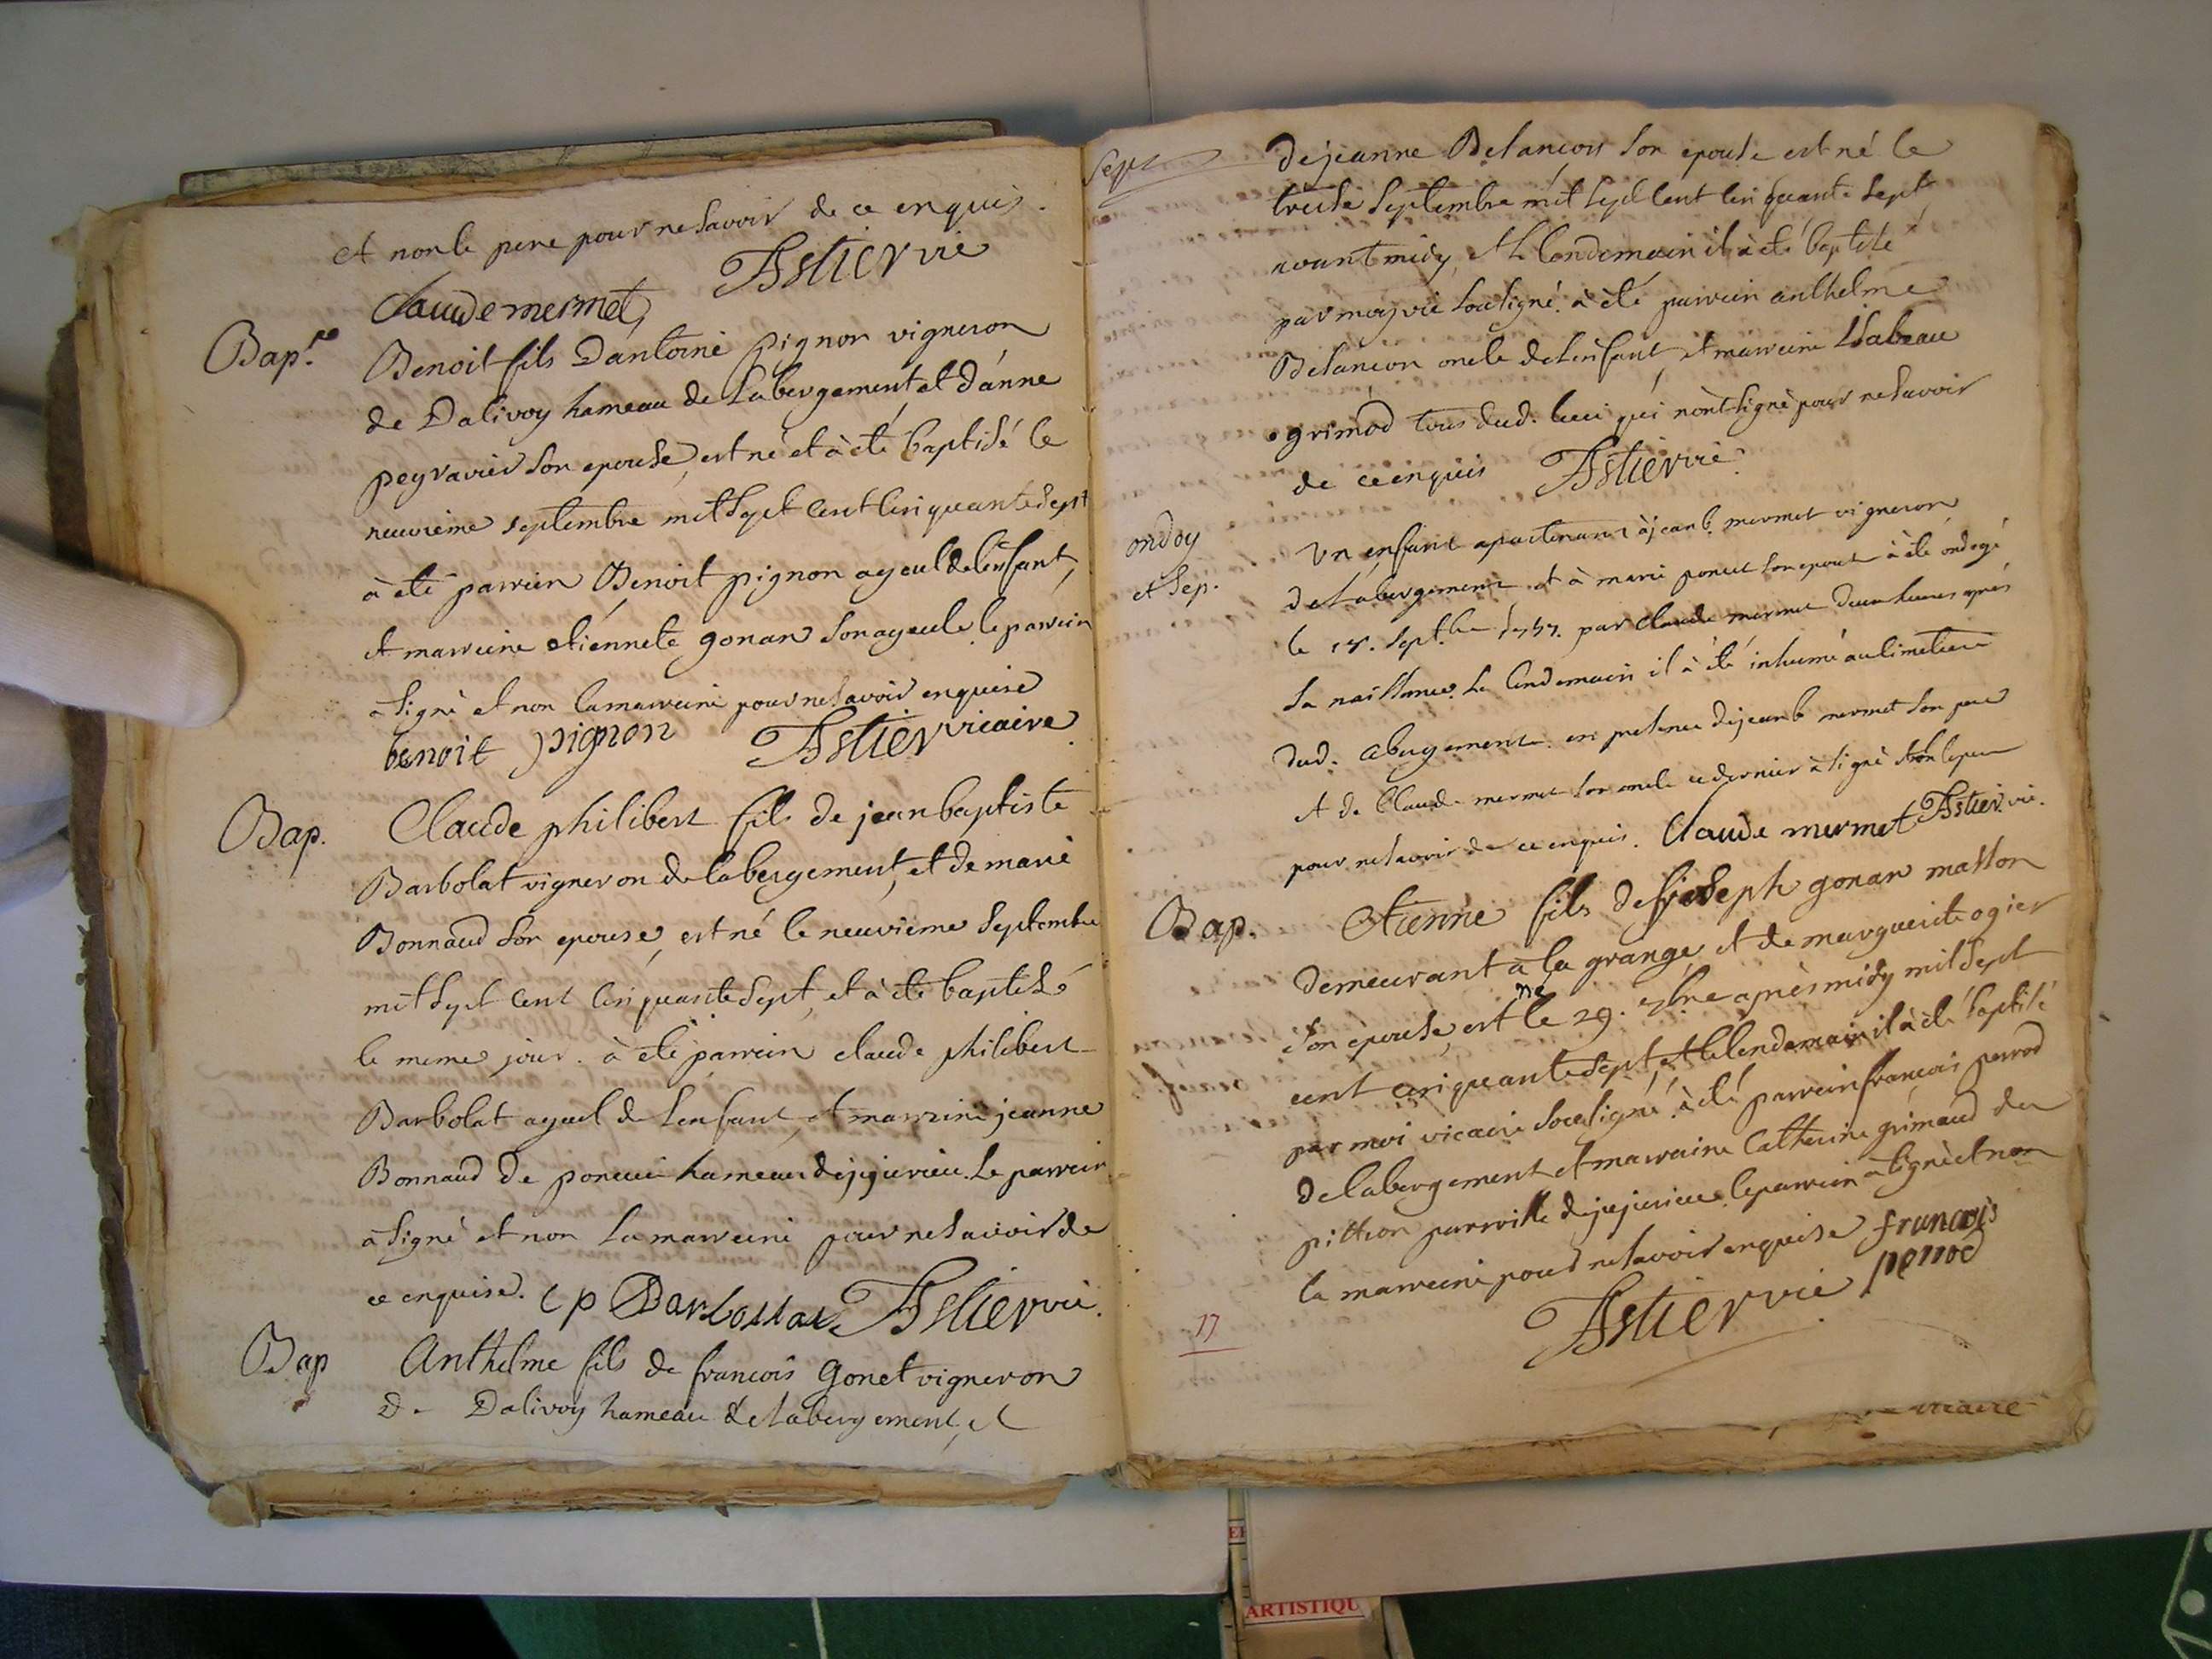 et non le pere pour ne savoir de ce enquis.
Claude mermet Astier vic
Bap.te Benoit fils D'antoine pignon vigneron
de Dalivoy hameau de Labergement et d'anne
peyravier son epouse, est né et à été baptisé le
neuvième septembre mil sept cent cinquante sept
à été parrein Benoit pignon ayeul de l'enfant,
et marreine etiennete gonan son ayeule. le parrein
a signé et non la marreine pour ne savoir enquise
benoit pignon Astier vicaire
Bap. Claude philibert fils de jean baptiste
Barbolat vigneron de labergement, et de marie
Bonnaud son epouse, est né le neuvième septembre
mil sept cent cinquante sept, et à été baptisé
le meme jour. à été parrein claude philibert
Barbolat ayeul de l'enfant, et marreine jeanne
Bonnaud de poncieu hameau de jujurieu. Le parrein
a signé et non la marreine pour ne savoir de
ce enquise. c p Barbollat Astier vic.
Bap Anthelme fils de francois Gonet vigneron
De Dalivoy hameau de labergement, et
Sept
de jeanne Belancon son epouse est né le
treise septembre mil sept cent cinquante sept
avant midy, et le lendemain il à été baptisé
par moy vic soussigné. à été parrein anthelme
Belancon oncle de l'enfant, et marreine Isabeau
grimod tous dud. lieu qui n'ont signé pour ne savoir
de ce enquis Astier vic.
ondoy
et Sep.
un enfant apartenant à jean b. mermet vigneron
de Labergement et à marie poncet son epouse à été ondoyé
le 15. sept.bre 1757. par Claude mermet deux heures après
sa naissance. Le lendemain il à été inhumé au cimetiere
dud. abergement. en presence de jean b mermet son pere
et de Claude mermet son oncle ce dernier à signé et non le pere
pour ne savoir de ce enquis. Claude mermet Astier vic.
Bap. Etienne fils de joseph gonan masson
demeurant à la grange, et de marguerite ogier
son epouse, est né le 29. 7bre après midy mil sept
cent cinquante sept, et le lendemain il à été baptisé
par moi vicaire soussigné. à été parrein francois perrod
de labergement et marraine Catherine grimaud de
pittion parroisse de jujurieu. le parrein a signé et non
la marreine pour ne savoir enquise francois
perrod
Astier vic
17
vicaire
ARTISTIQU